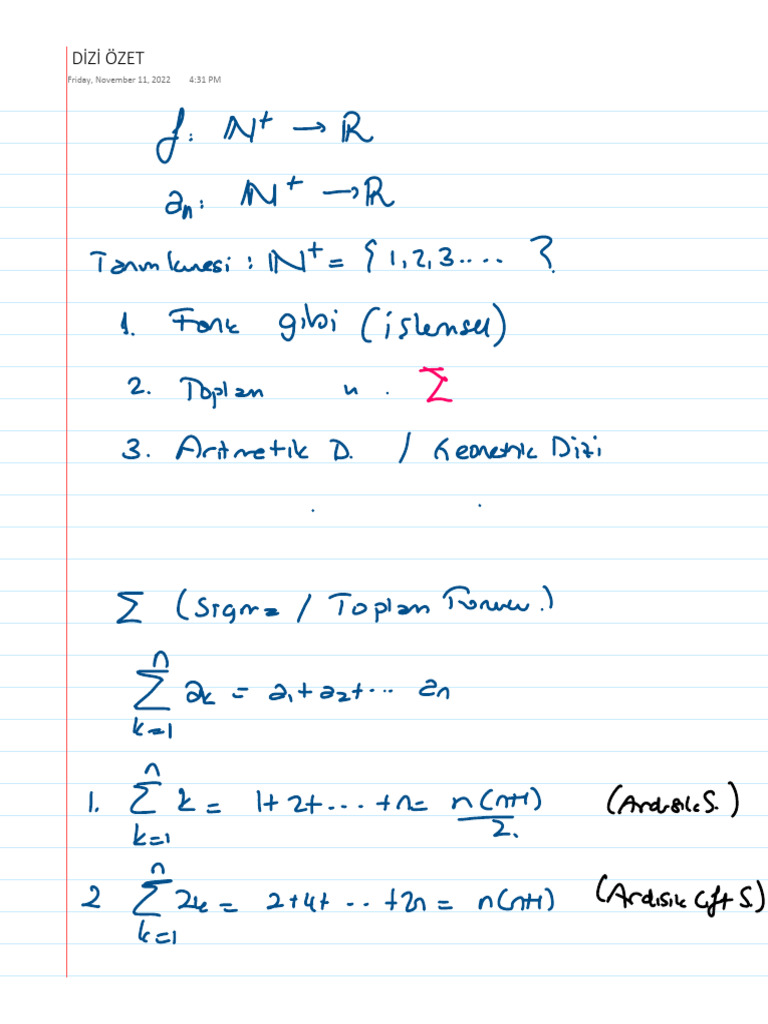 DİZİ ÖZET
Friday, November 11, 2022 4:31 PM
f: ℕ⁺ → ℝ
aₙ: ℕ⁺ → ℝ
Tanım kümesi : ℕ⁺ = { 1, 2, 3 .... }
1. Fonk gibi (işlemsel)
2. Toplam " . Σ
3. Aritmetik D. / Geometrik Dizi
Σ (Sigma / Toplam )
n
Σ aₖ = a₁ + a₂ + ... aₙ
k=1
n
1. Σ k = 1+2+...+n = n(n+1)/2. (Ardışık S.)
k=1
n
2 Σ 2k = 2+4+ ... +2n = n(n+1) (Ardışık Çift S.)
k=1